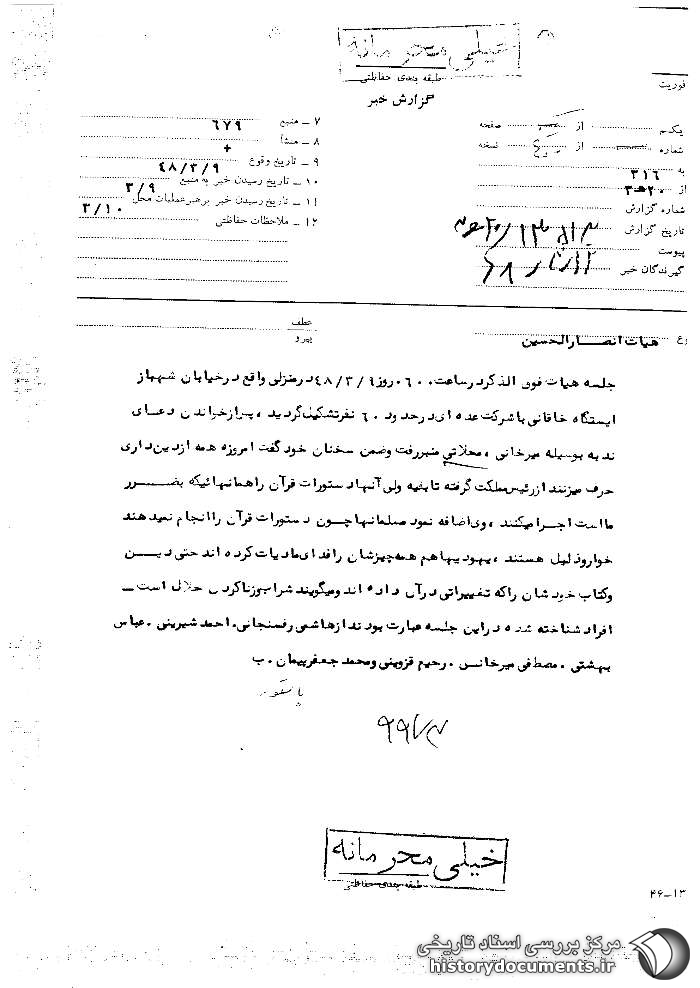 خیلی محرمانه
طبقه بندی حفاظتی
گزارش خبر
فوریت
یکم از صفحه
شماره از نسخه
به ۳۱۶
از ۲۰ه۳
شماره گزارش
تاریخ گزارش
پیوست
گیرندگان خبر
۷ ـ منبع ۶۷۹
۸ ـ منشأ +
۹ ـ تاریخ وقوع ۴۸/۳/۹
۱۰ ـ تاریخ رسیدن خبر به منبع ۳/۹
۱۱ ـ تاریخ رسیدن خبر برهبر عملیات محل ۳/۱۰
۱۲ ـ ملاحظات حفاظتی
عطف
پیرو
هیات انصارالحسین
جلسه هیات فوق الذکر در ساعت ۰۶۰۰ روز ۴۸/۳/۹ در منزلی واقع در خیابان شهباز
ایستگاه خاقانی با شرکت عده ای در حدود ۶۰ نفر تشکیل گردید ، پس از خواندن دعای
ندبه بوسیله میرخانی ، محلاتی منبر رفت و ضمن سخنان خود گفت امروزه همه از دین داری
حرف میزنند از رئیس مملکت گرفته تا بقیه ولی آنها دستورات قرآن را همانهائیکه بضرر
ما است اجرا میکنند ، وی اضافه نمود مسلمانها چون دستورات قرآن را انجام نمیدهند
خوار و ذلیل هستند ، یهودیها هم همه چیزشان را فدای مادیات کرده اند حتی دین
و کتاب خودشان را که تغییراتی در آن داده اند و میگویند شراب و زنا کردن حلال است ـ
افراد شناخته شده در این جلسه عبارت بودند از هاشمی رفسنجانی . احمد شیرینی . عباس
بهشتی . مصطفی میرخانی . رحیم قزوینی و محمد جعفر پیمان . ب
خیلی محرمانه
طبقه بندی حفاظتی
۴۶-۱۳
مرکز بررسی اسناد تاریخی
historydocuments.ir